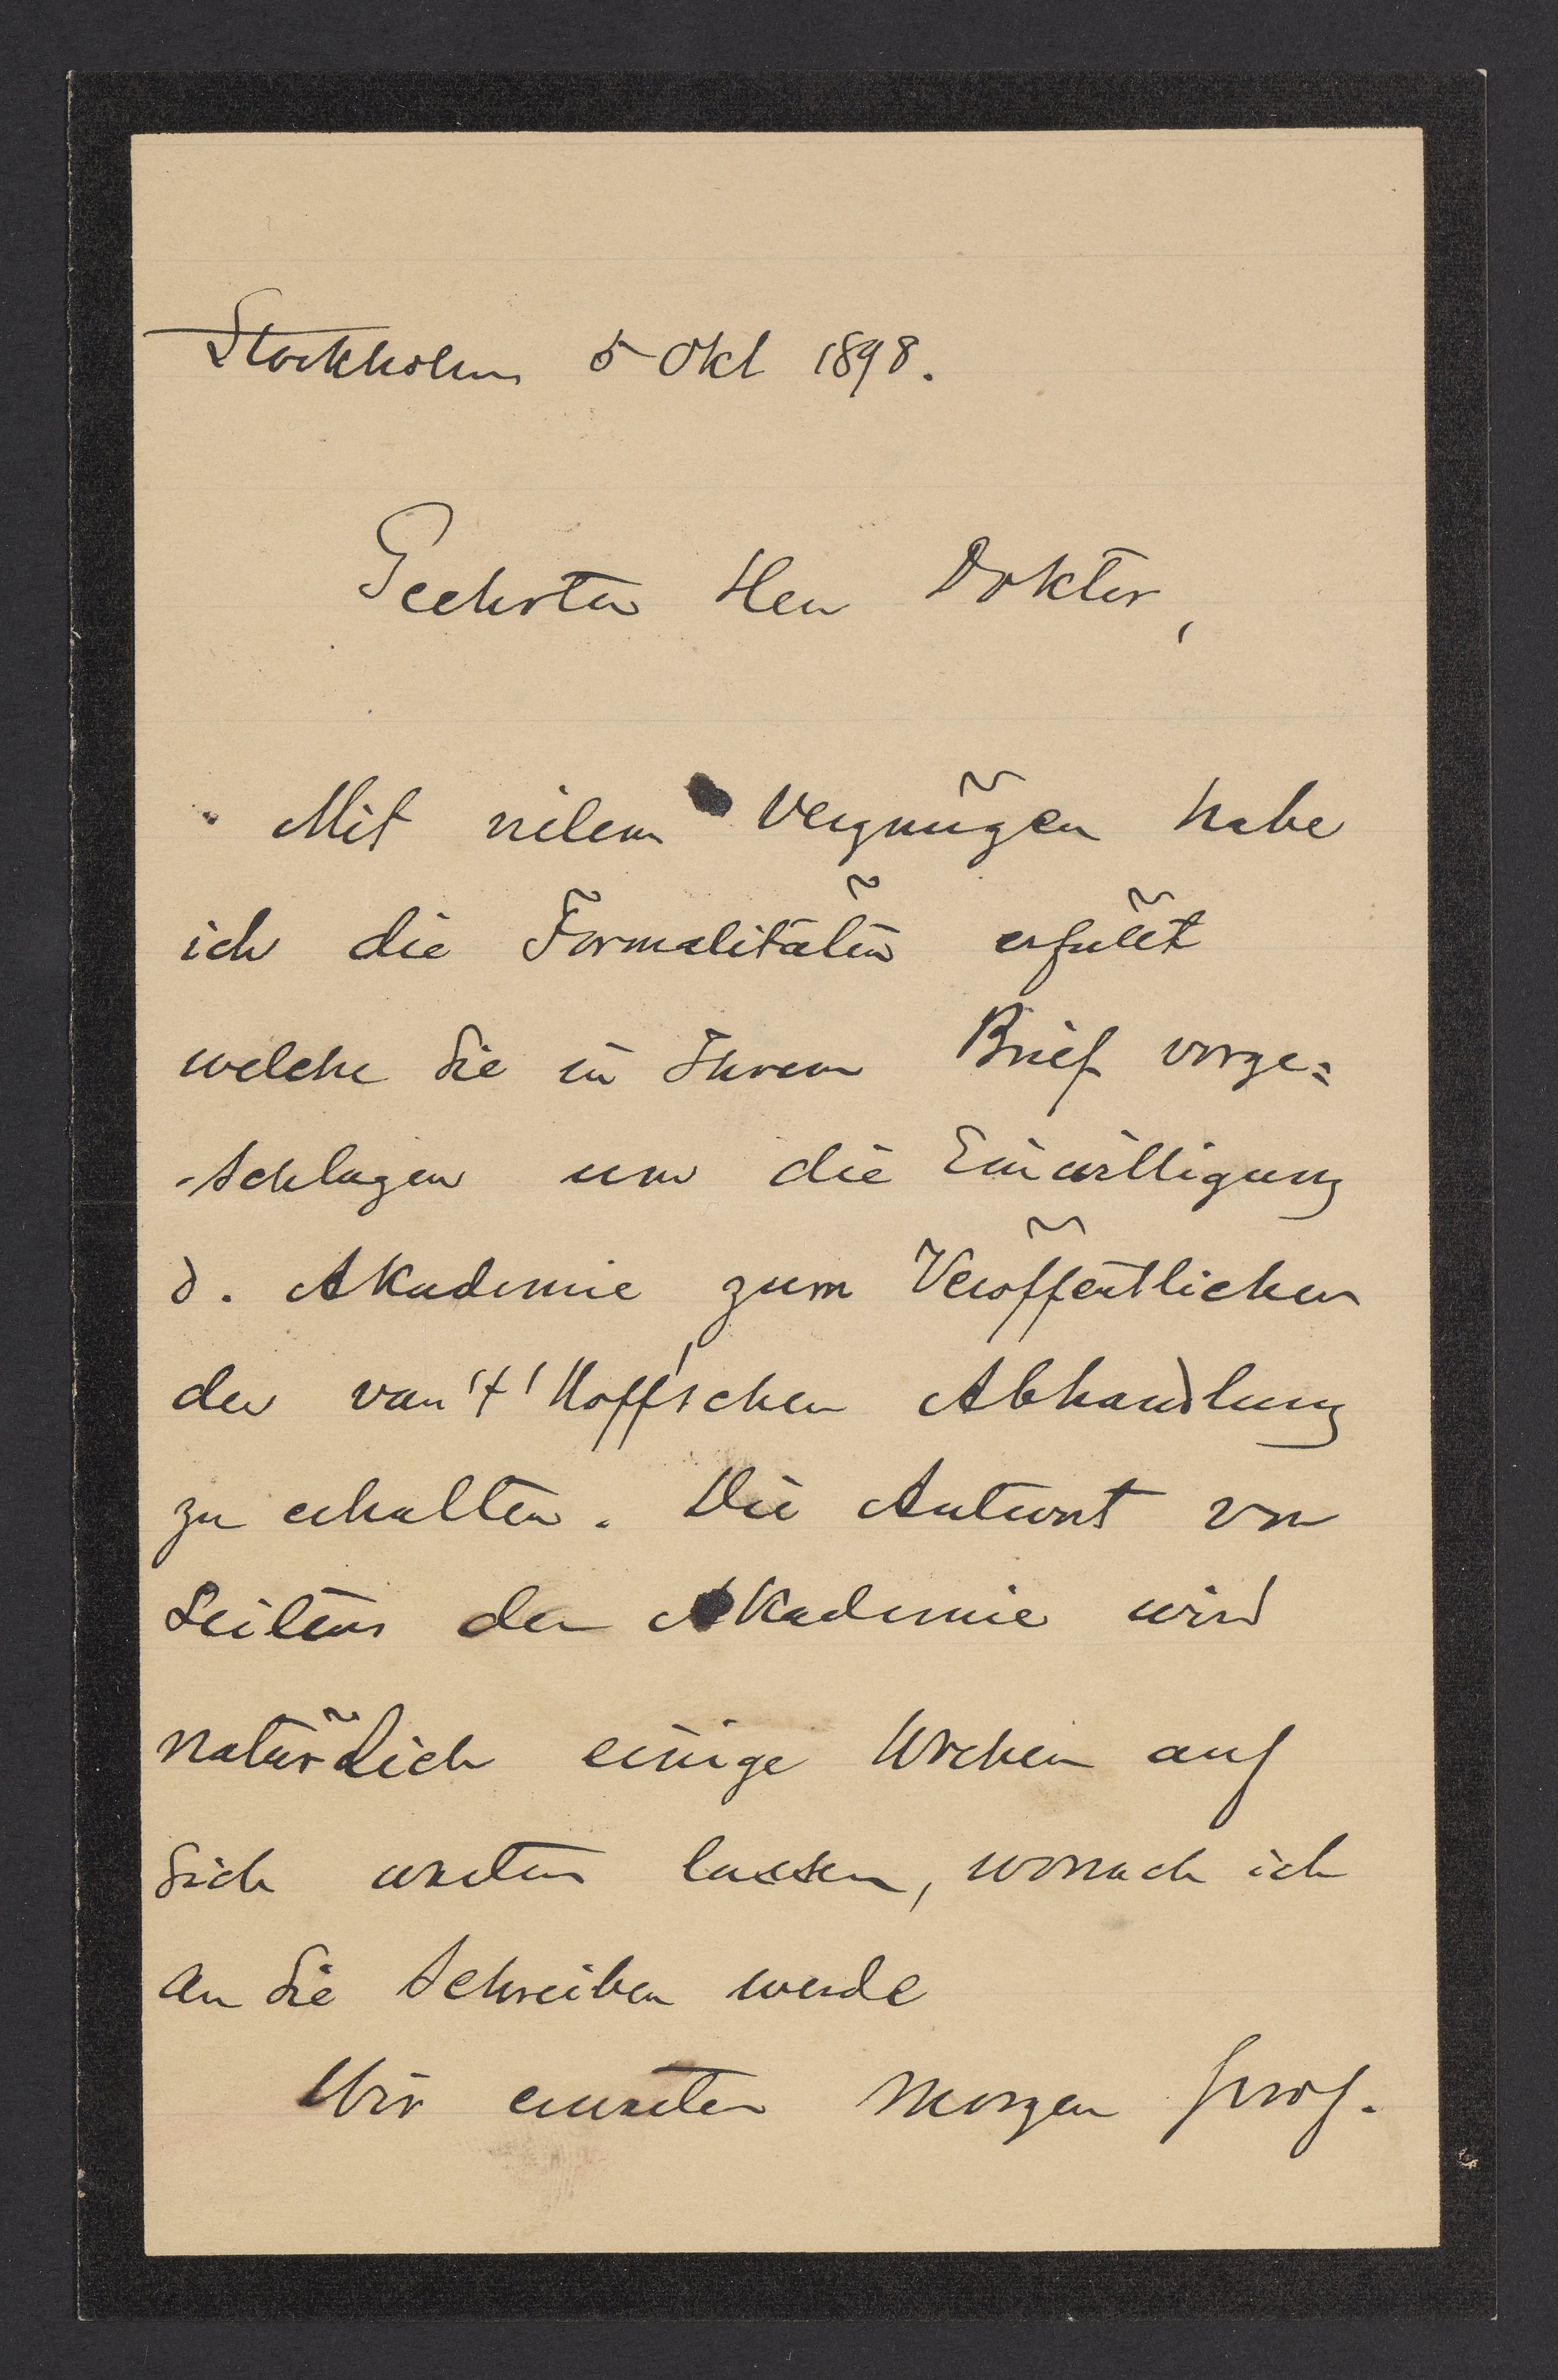 Stockholm 5 Okt 1898.
Geehrter Herr Doktor,
Mit vielem Vergnügen habe
ich die Formalitäten erfüllt
welche Sie in Ihrem Brief vorge=
-schlagen um die Einwilligung
d. Akademie zum Veröffentlichen
der van't'Hoff'schen Abhandlung
zu erhalten. Die Antwort von
Seitens der Akademie wird
natürlich einige Wochen auf
sich warten lassen, wonach ich
an Sie schreiben werde
Wir erwarten morgen Prof.